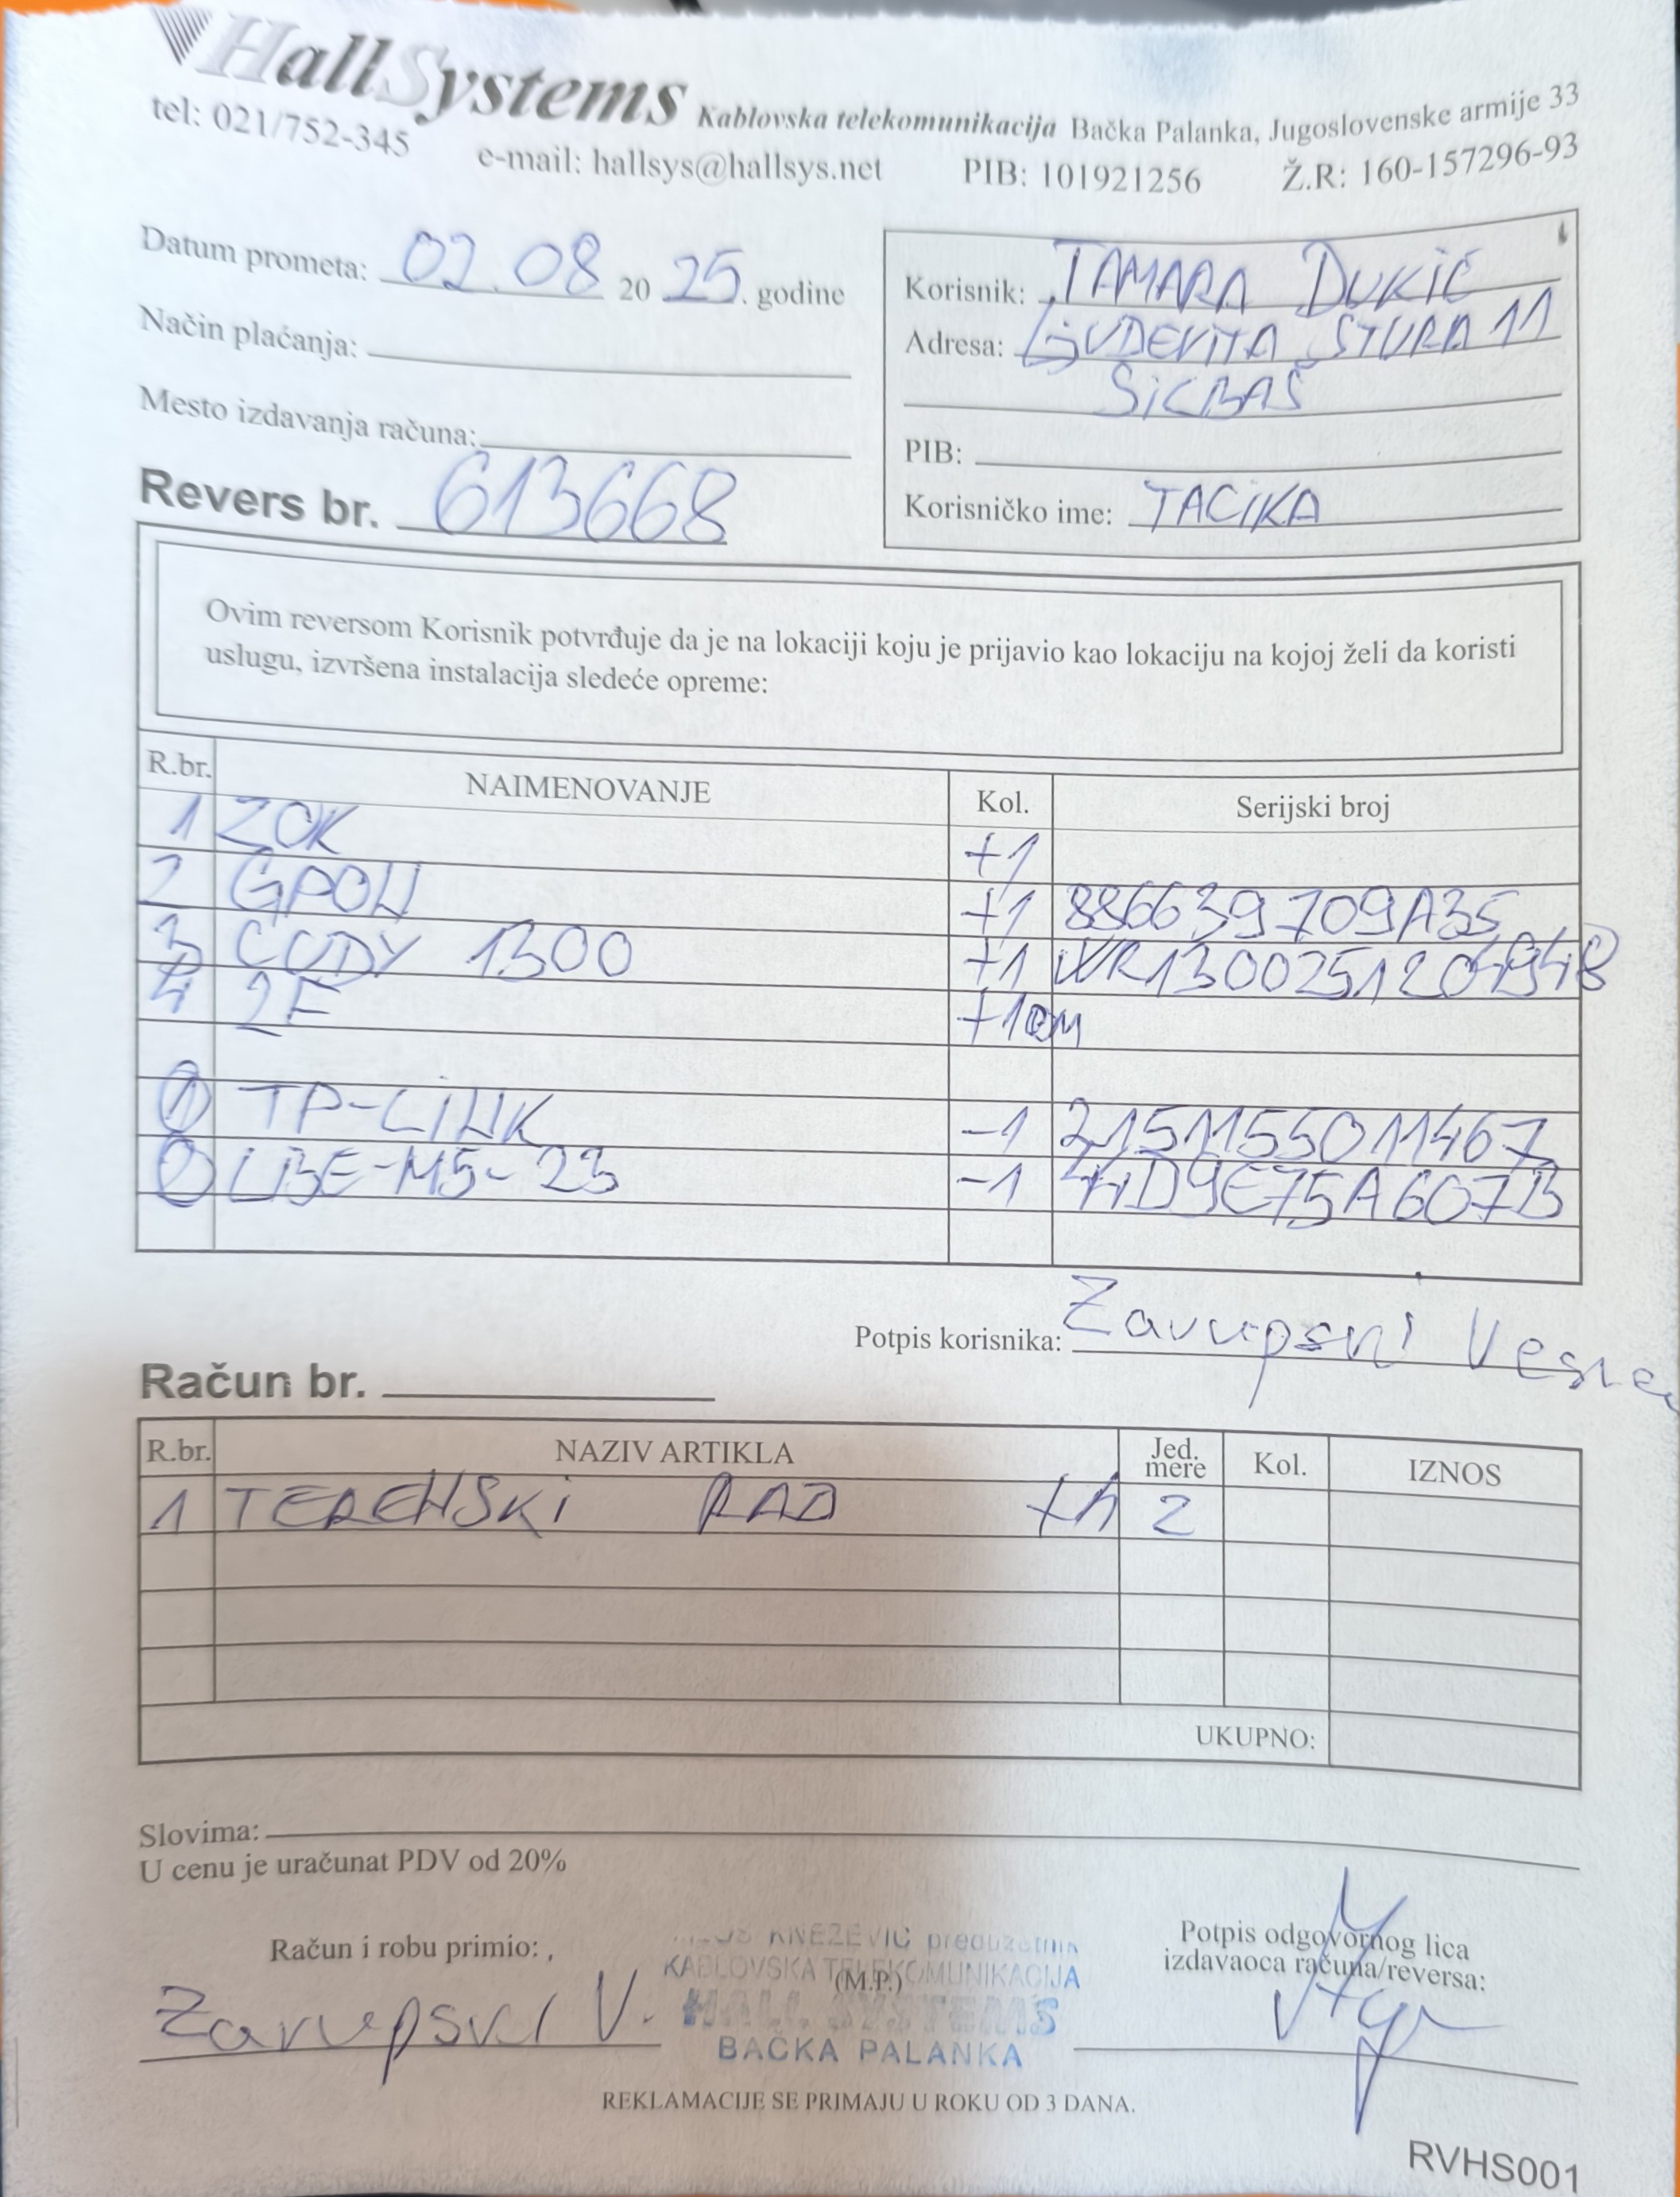 HallSystems Kablovska telekomunikacija Bačka Palanka, Jugoslovenske armije 33
tel: 021/752-345 e-mail: hallsys@hallsys.net PIB: 101921256 Ž.R: 160-157296-93
Datum prometa: 02.08 20 25. godine
Način plaćanja:
Mesto izdavanja računa:
Revers br. 613668
Korisnik: TAMARA DUKIĆ
Adresa: LJUDEVITA ŠTURA 11
PIB:
Korisničko ime: TACIKA
Ovim reversom Korisnik potvrđuje da je na lokaciji koju je prijavio kao lokaciju na kojoj želi da koristi
uslugu, izvršena instalacija sledeće opreme:
R.br. NAIMENOVANJE Kol. Serijski broj
1 ZOK +1
2 GPON +1 886639709A35
3 CUDY 1300 +1
4 2F
1 TP-LINK -1 2151155011467
2 LBE-M5-23 -1 44D9E75A607B
Potpis korisnika:
Račun br.
R.br. NAZIV ARTIKLA Jed. mere Kol. IZNOS
1 TERENSKI RAD +h 2
UKUPNO:
Slovima:
U cenu je uračunat PDV od 20%
Račun i robu primio:
KNEZEVIC preduzetnik
KABLOVSKA TELEKOMUNIKACIJA
(M.P.)
HALL SYSTEMS
BAČKA PALANKA
Potpis odgovornog lica
izdavaoca računa/reversa:
REKLAMACIJE SE PRIMAJU U ROKU OD 3 DANA.
RVHS001